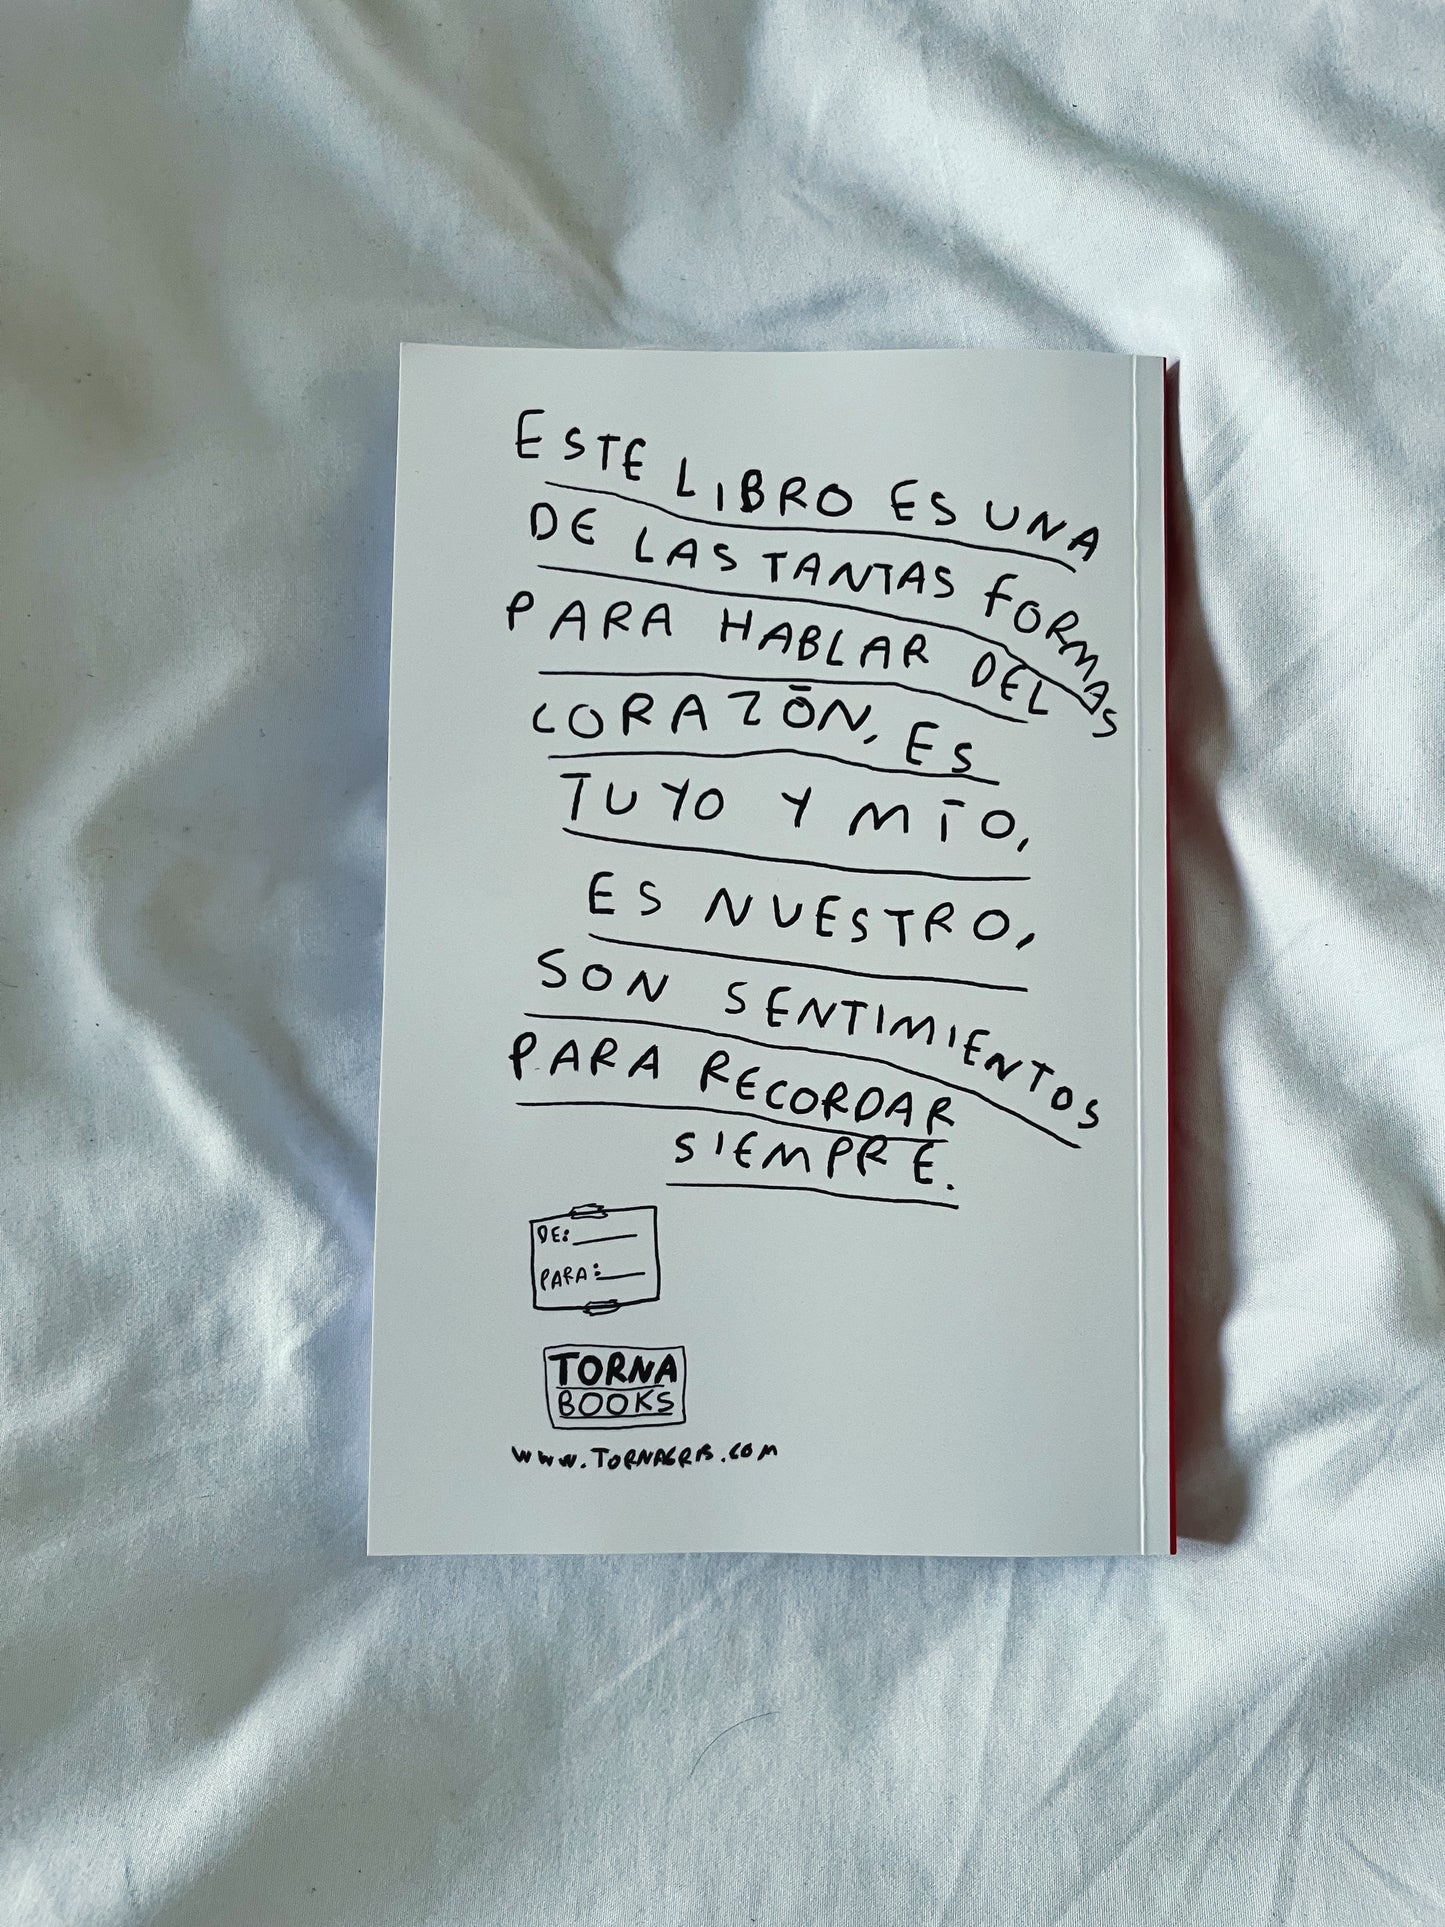 ESTE LIBRO ES UNA
DE LAS TANTAS FORMAS
PARA HABLAR DEL
CORAZÓN, ES
TUYO Y MÍO,
ES NUESTRO,
SON SENTIMIENTOS
PARA RECORDAR
SIEMPRE.
DE:
PARA:
TORNA
BOOKS
WWW.TORNAGRIS.COM